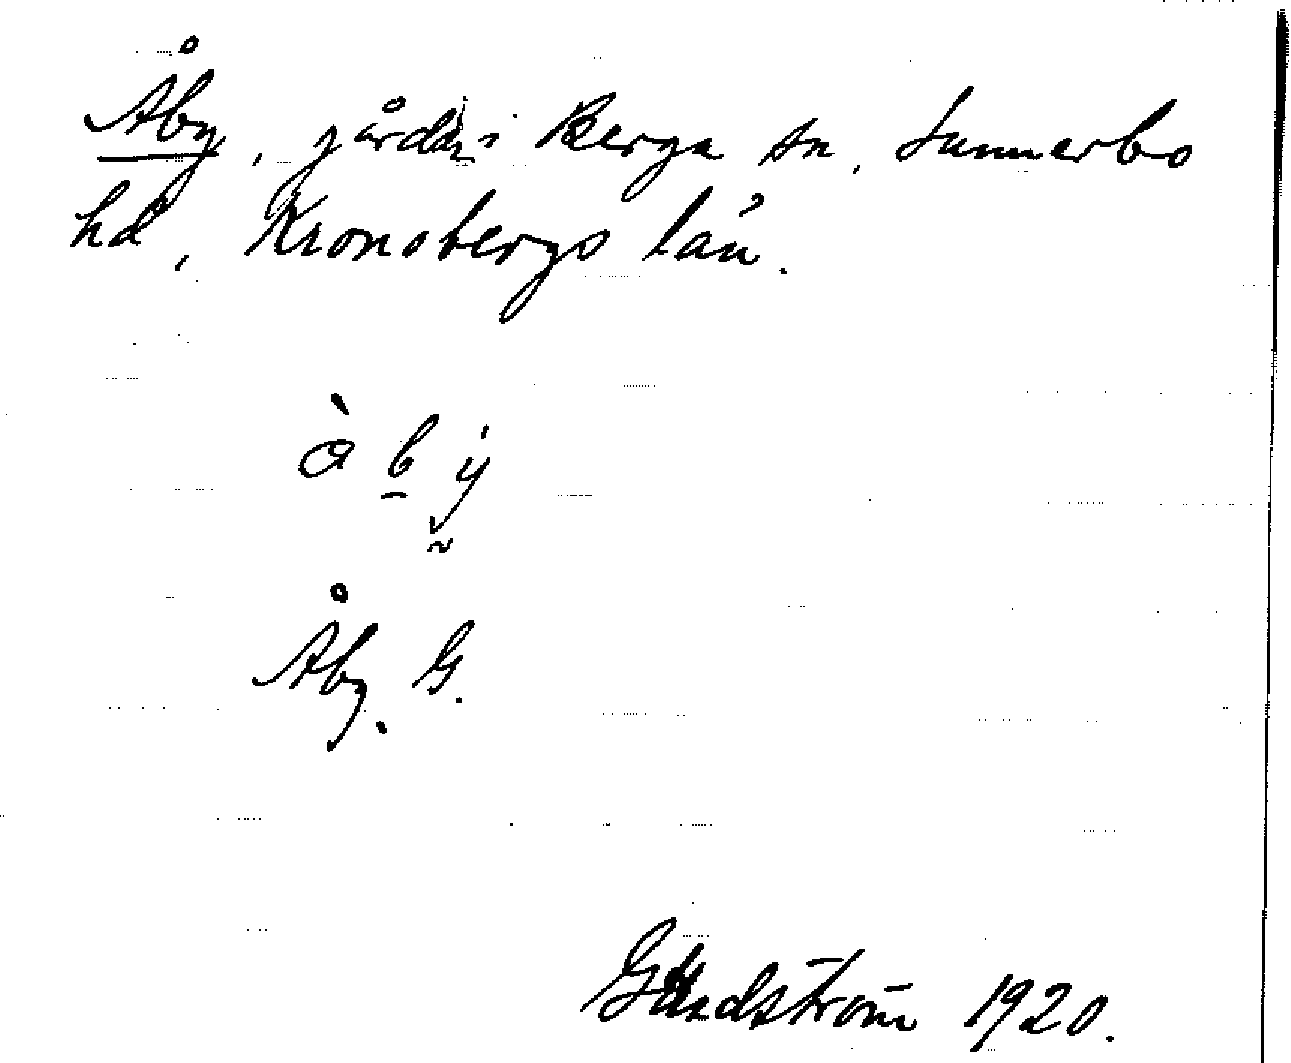 Åby, gårdar i Berga sn, Sunnerbo
hd, Kronobergs län.
à b ý
Åby. G.
1920.